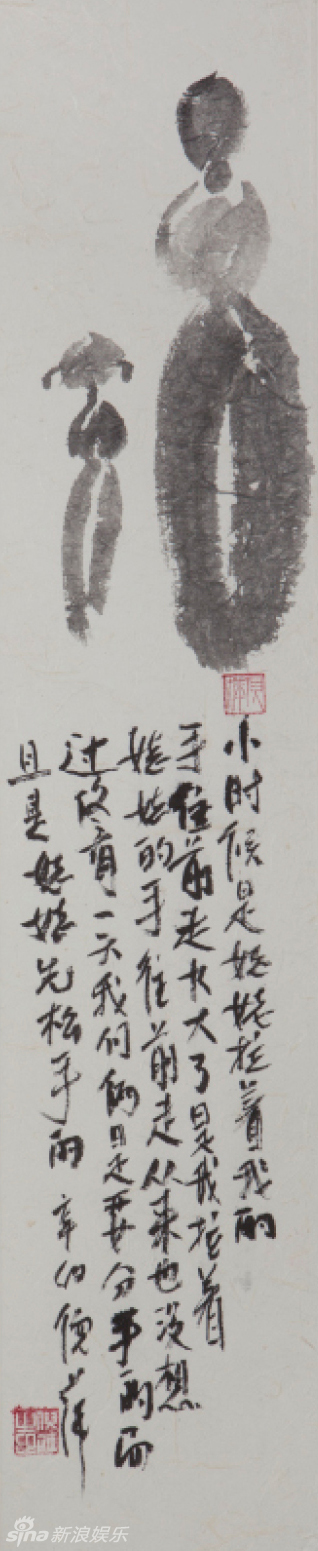 小时候是姥姥拉着我的
手往前走长大了是我拉着
姥姥的手往前走从来也没想
过终有一天我们俩是要分手的而
且是姥姥先松手的 辛卯 倪萍
sina新浪娱乐